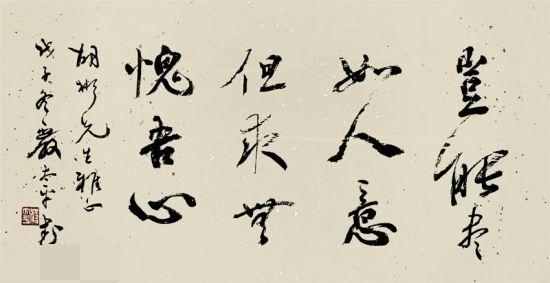 豈能盡
如人意
但求無
愧吾心
胡彬先生雅正
戊子冬嚴太平書